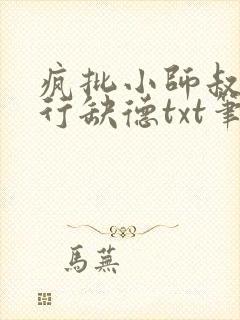 疯批小師叔
行缺德txt筆
馬蕪